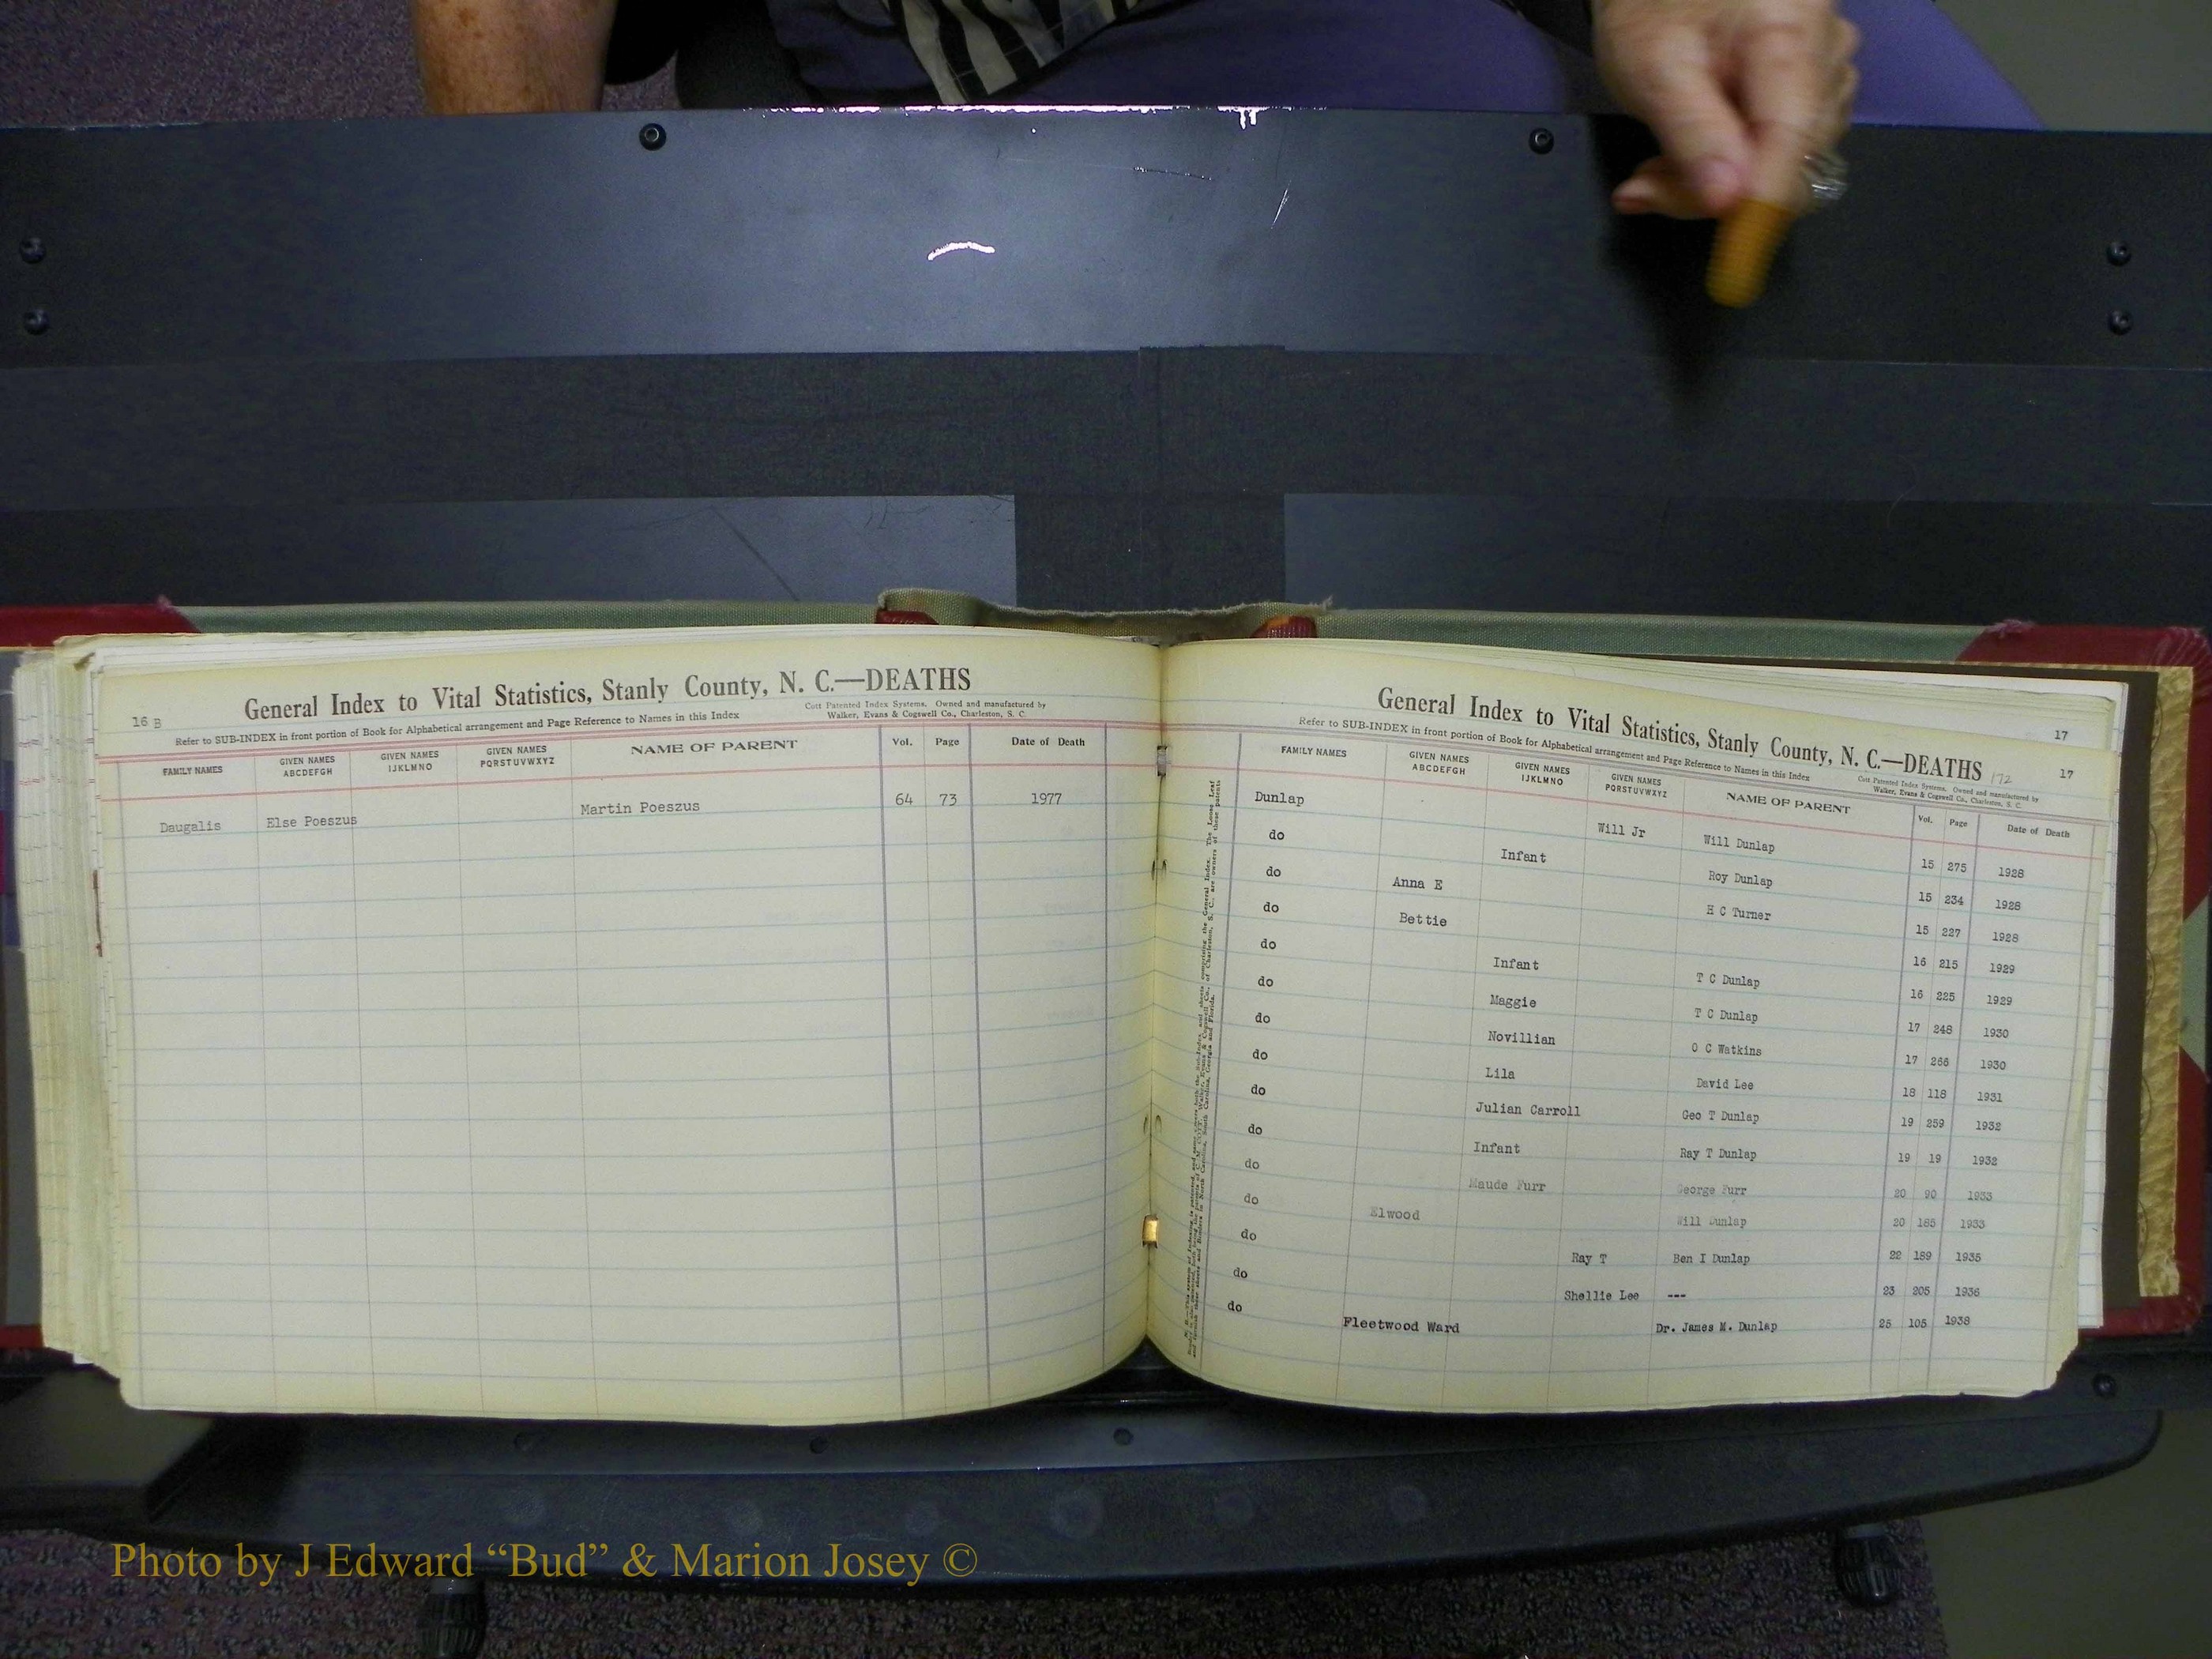 16 B
General Index to Vital Statistics, Stanly County, N. C.—DEATHS
Refer to SUB-INDEX in front portion of Book for Alphabetical arrangement and Page Reference to Names in this Index
Cott Patented Index Systems. Owned and manufactured by
Walker, Evans & Cogswell Co., Charleston, S. C.
FAMILY NAMES GIVEN NAMES ABCDEFGH GIVEN NAMES IJKLMNO GIVEN NAMES PQRSTUVWXYZ NAME OF PARENT Vol. Page Date of Death
Daugalis Else Poeszus Martin Poeszus 64 73 1977
17
General Index to Vital Statistics, Stanly County, N. C.—DEATHS 172 17
Refer to SUB-INDEX in front portion of Book for Alphabetical arrangement and Page Reference to Names in this Index
Cott Patented Index Systems. Owned and manufactured by
Walker, Evans & Cogswell Co., Charleston, S. C.
FAMILY NAMES GIVEN NAMES ABCDEFGH GIVEN NAMES IJKLMNO GIVEN NAMES PQRSTUVWXYZ NAME OF PARENT Vol. Page Date of Death
Dunlap Will Jr Will Dunlap 15 275 1928
do Infant Roy Dunlap 15 234 1928
do Anna E H C Turner 15 227 1928
do Bettie 16 215 1929
do Infant T C Dunlap 16 225 1929
do Maggie T C Dunlap 17 248 1930
do Novillian O C Watkins 17 266 1930
do Lila David Lee 18 118 1931
do Julian Carroll Geo T Dunlap 19 259 1932
do Infant Ray T Dunlap 19 19 1932
do Maude Furr George Furr 20 90 1933
do Elwood Will Dunlap 20 185 1933
do Ray T Ben I Dunlap 22 189 1935
do Shellie Lee --- 23 205 1936
do Fleetwood Ward Dr. James M. Dunlap 25 105 1938
Photo by J Edward “Bud” & Marion Josey ©